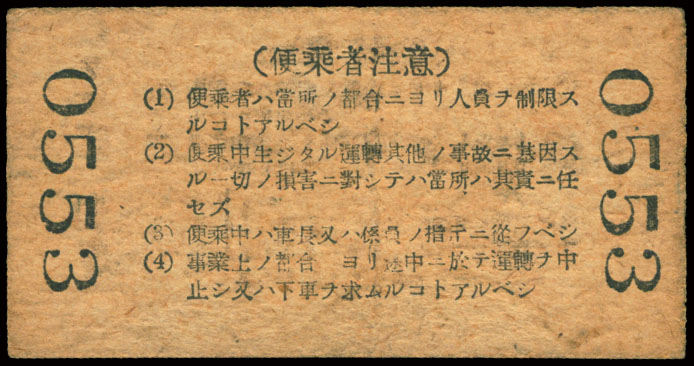 (便乘者注意)
(1) 便乘者ハ當所ノ都合ニヨリ人員ヲ制限ス
ルコトアルベシ
(2) 便乘中生ジタル運轉其他ノ事故ニ基因ス
ル一切ノ損害ニ對シテハ當所ハ其責ニ任
セズ
(3) 便乘中ハ車長又ハ係員ノ指示ニ從フベシ
(4) 事業上ノ都合 ヨリ途中ニ於テ運轉ヲ中
止シ又ハ下車ヲ求ムルコトアルベシ
0553
0553